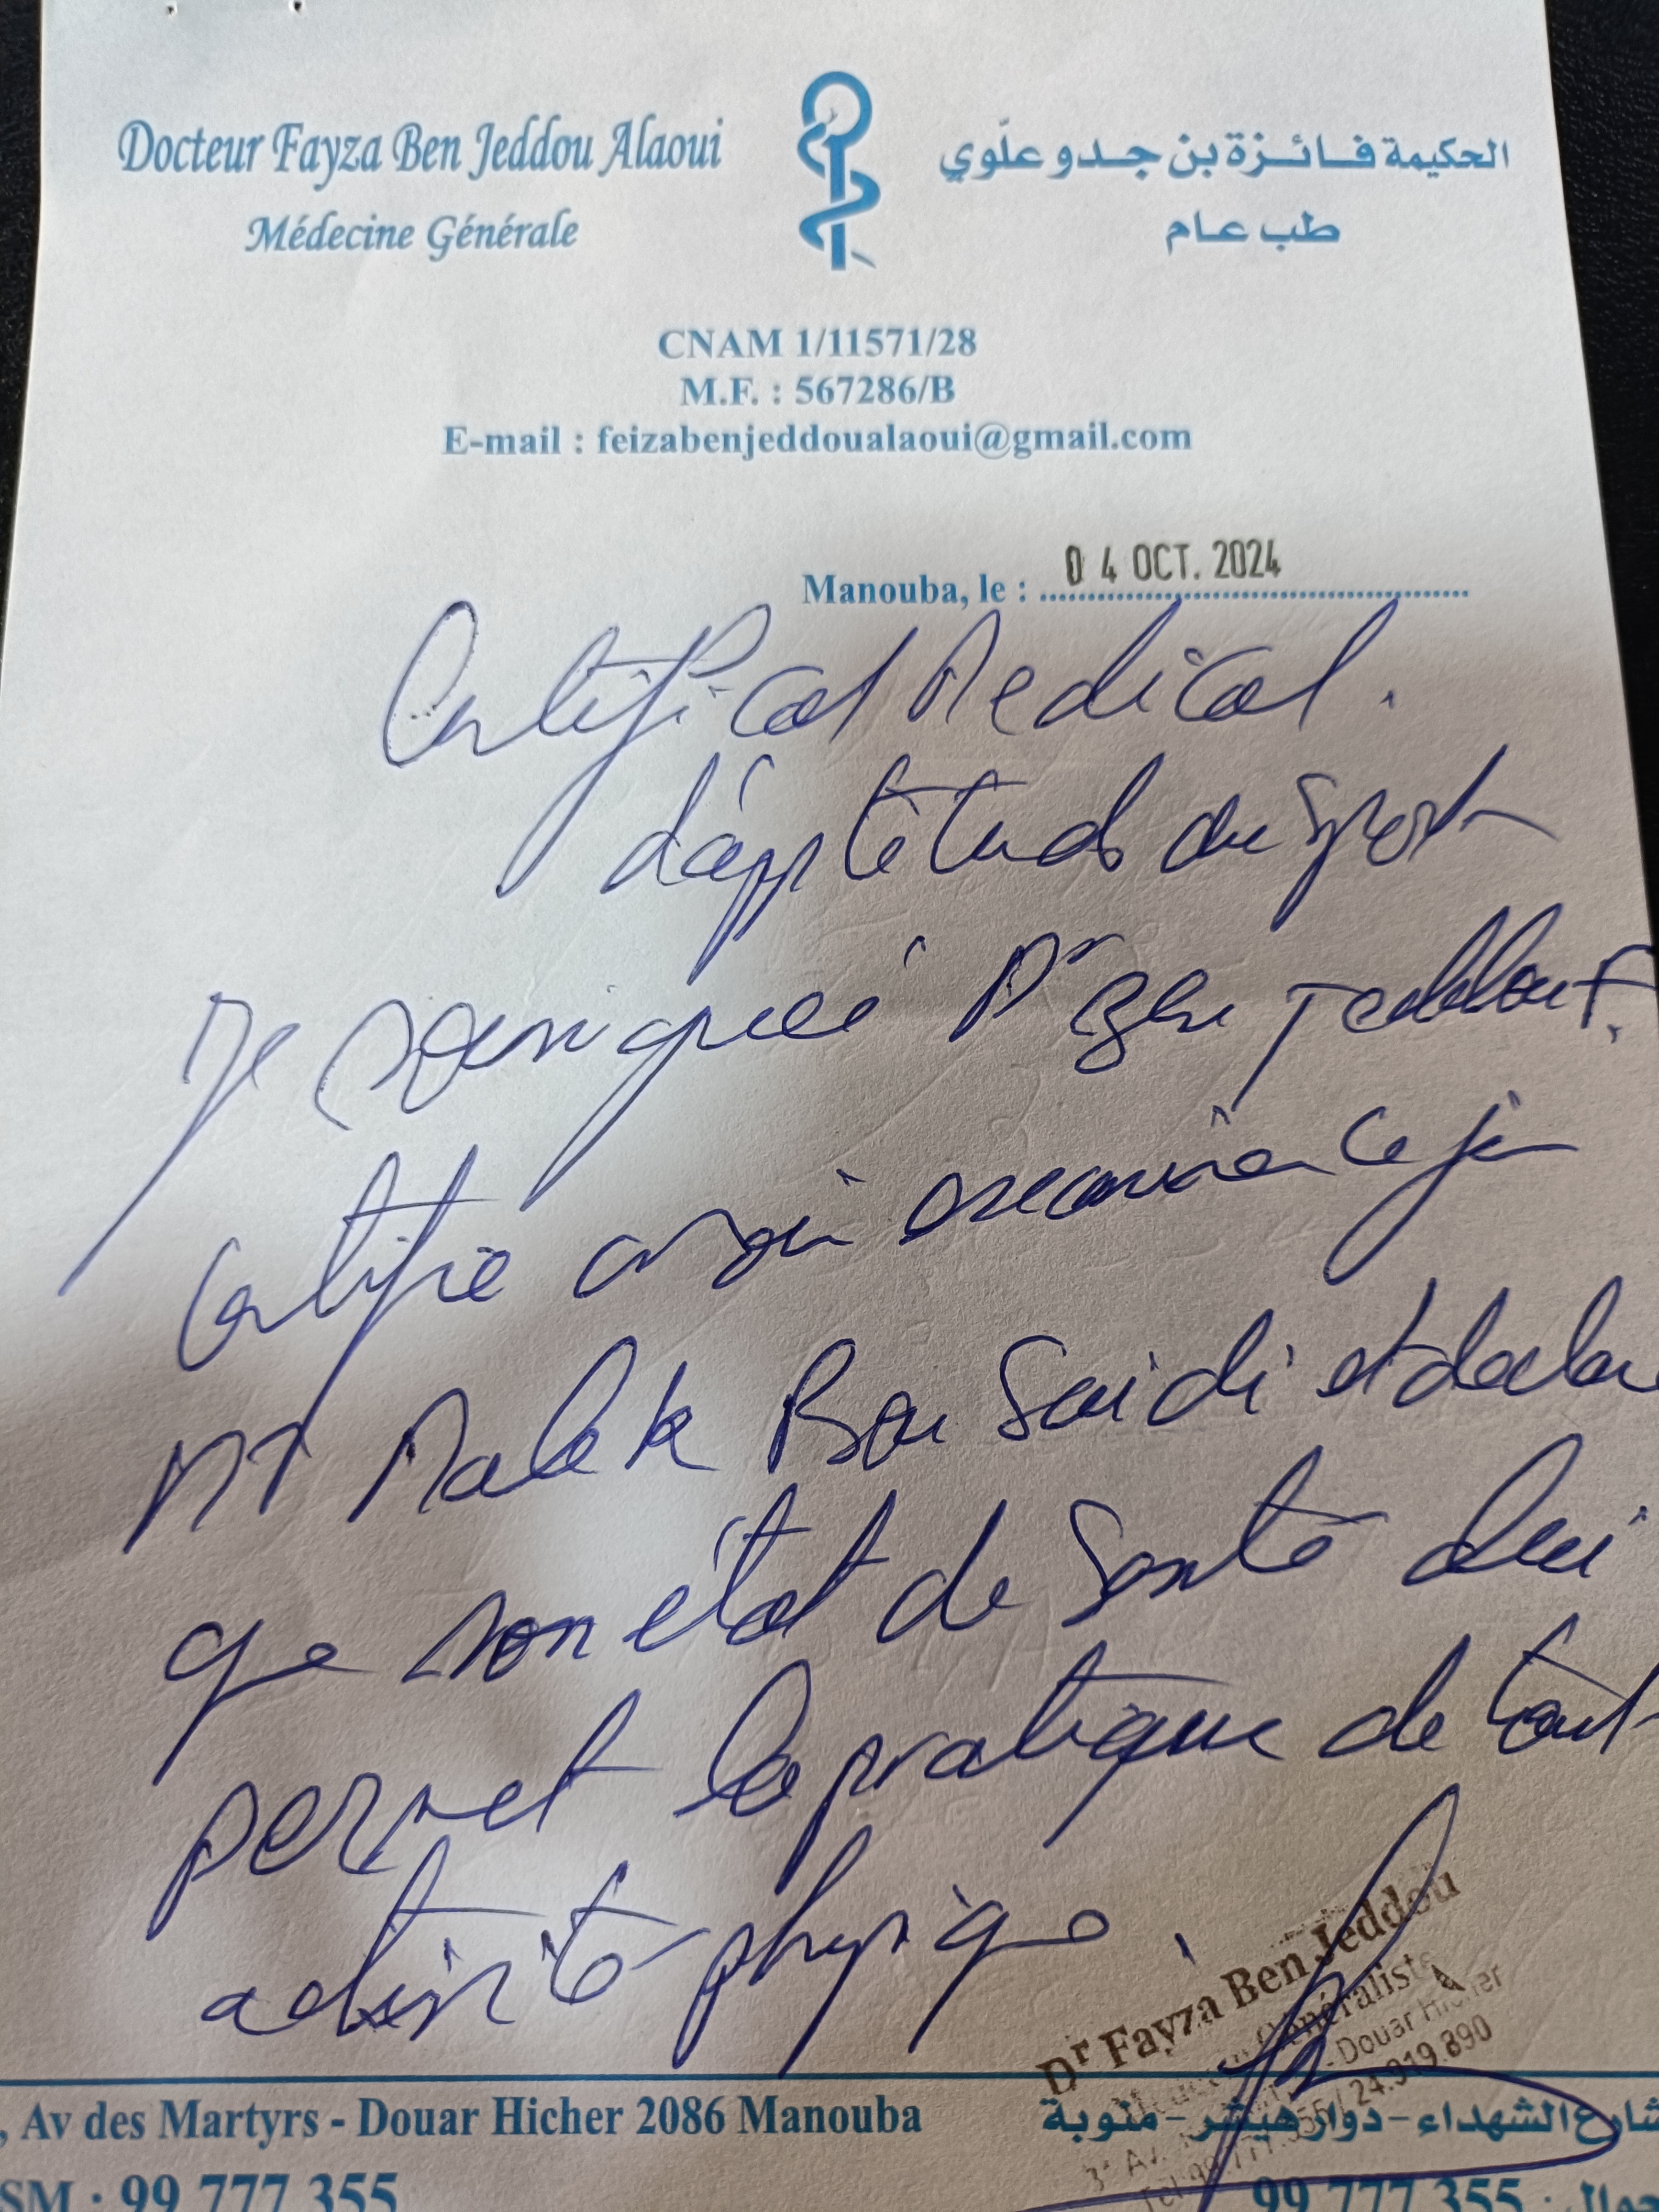 Docteur Fayza Ben Jeddou Alaoui
Médecine Générale
الحكيمة فائزة بن جدو علّوي
طب عام
CNAM 1/11571/28
M.F. : 567286/B
E-mail : feizabenjeddoualaoui@gmail.com
Manouba, le : 04 OCT. 2024
Certificat Medical.
d'apptitude au Sport
Je soussignée Dr Ben Jeddou F.
Certifie avoir examiné ce jour
Mr Malek Bou Saidi et declare
que son état de Santé lui
permet la pratique de tout
activité physique.
Dr Fayza Ben Jeddou
Généraliste
Douar Hicher
99.777.355 / 24.919.890
, Av des Martyrs - Douar Hicher 2086 Manouba
شارع الشهداء - دوار هيشر - منوبة
SM : 99 777 355
99 777 355